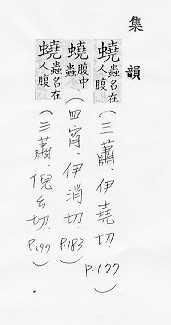 集韻
蟯蟲名在人腹(三蕭.伊堯切 P.177)
蟯腹中蟲(四宵.伊消切.P.183)
蟯蟲名在人腹(三蕭.倪幺切.P.177)